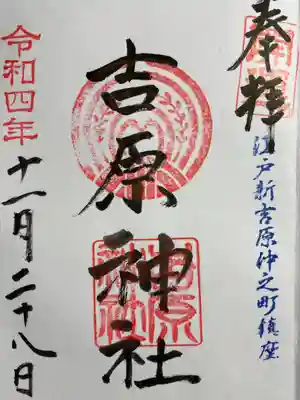 奉拝
江戸新吉原仲之町鎮座
吉原神社
吉原神社
令和四年
十一月二十八日